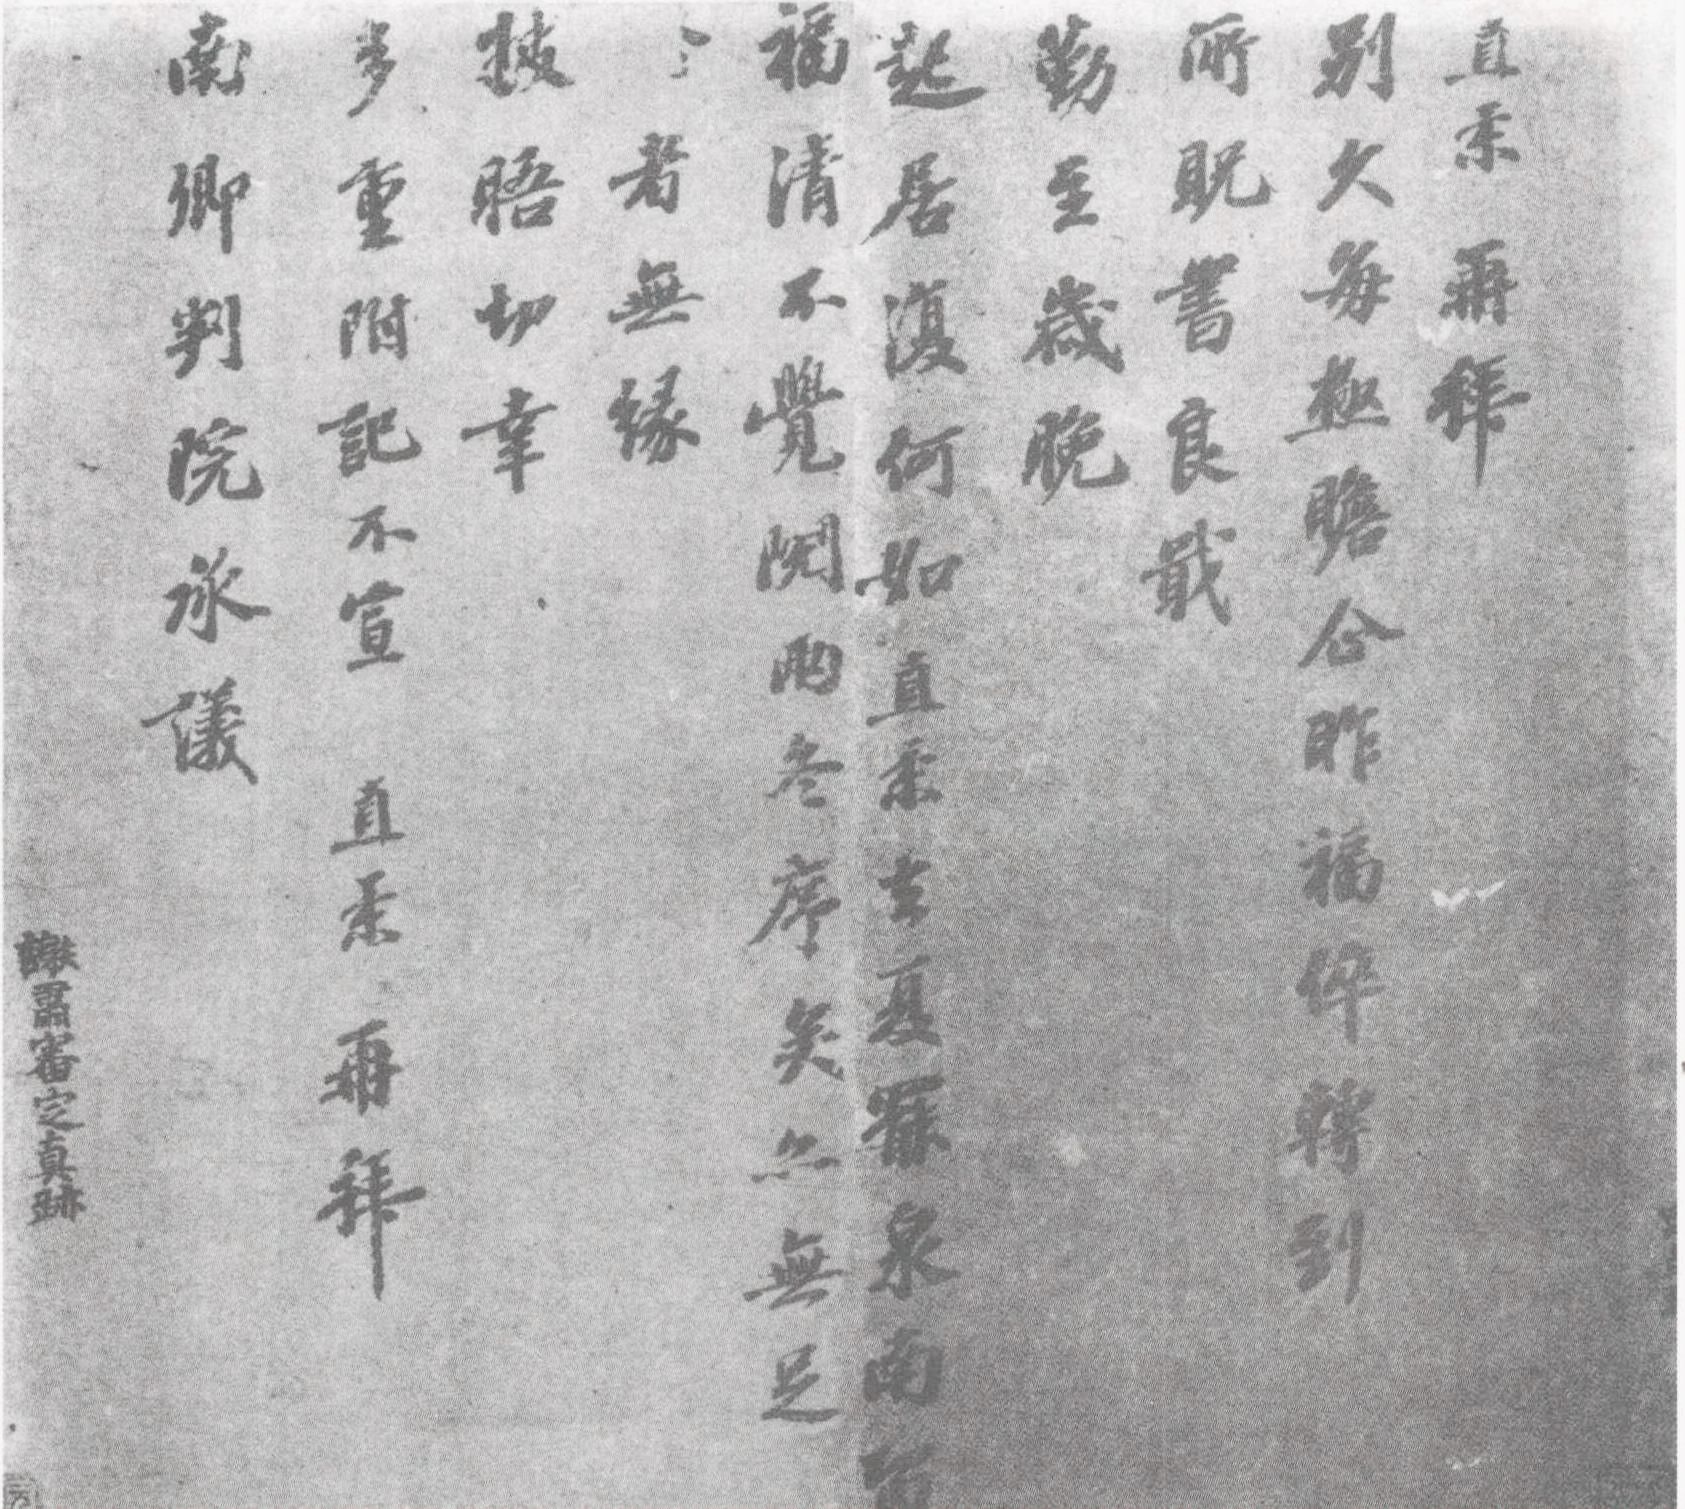 直柔再拜
別久每極瞻仰昨福倅轉到
所貺書良戢
勤至歲晚
起居復何如直柔去夏罷泉南
福清不覺閱兩冬序矣亦無足
者無緣
披晤切幸
多重附記不宣 直柔 再拜
南卿判院承議
審定真跡